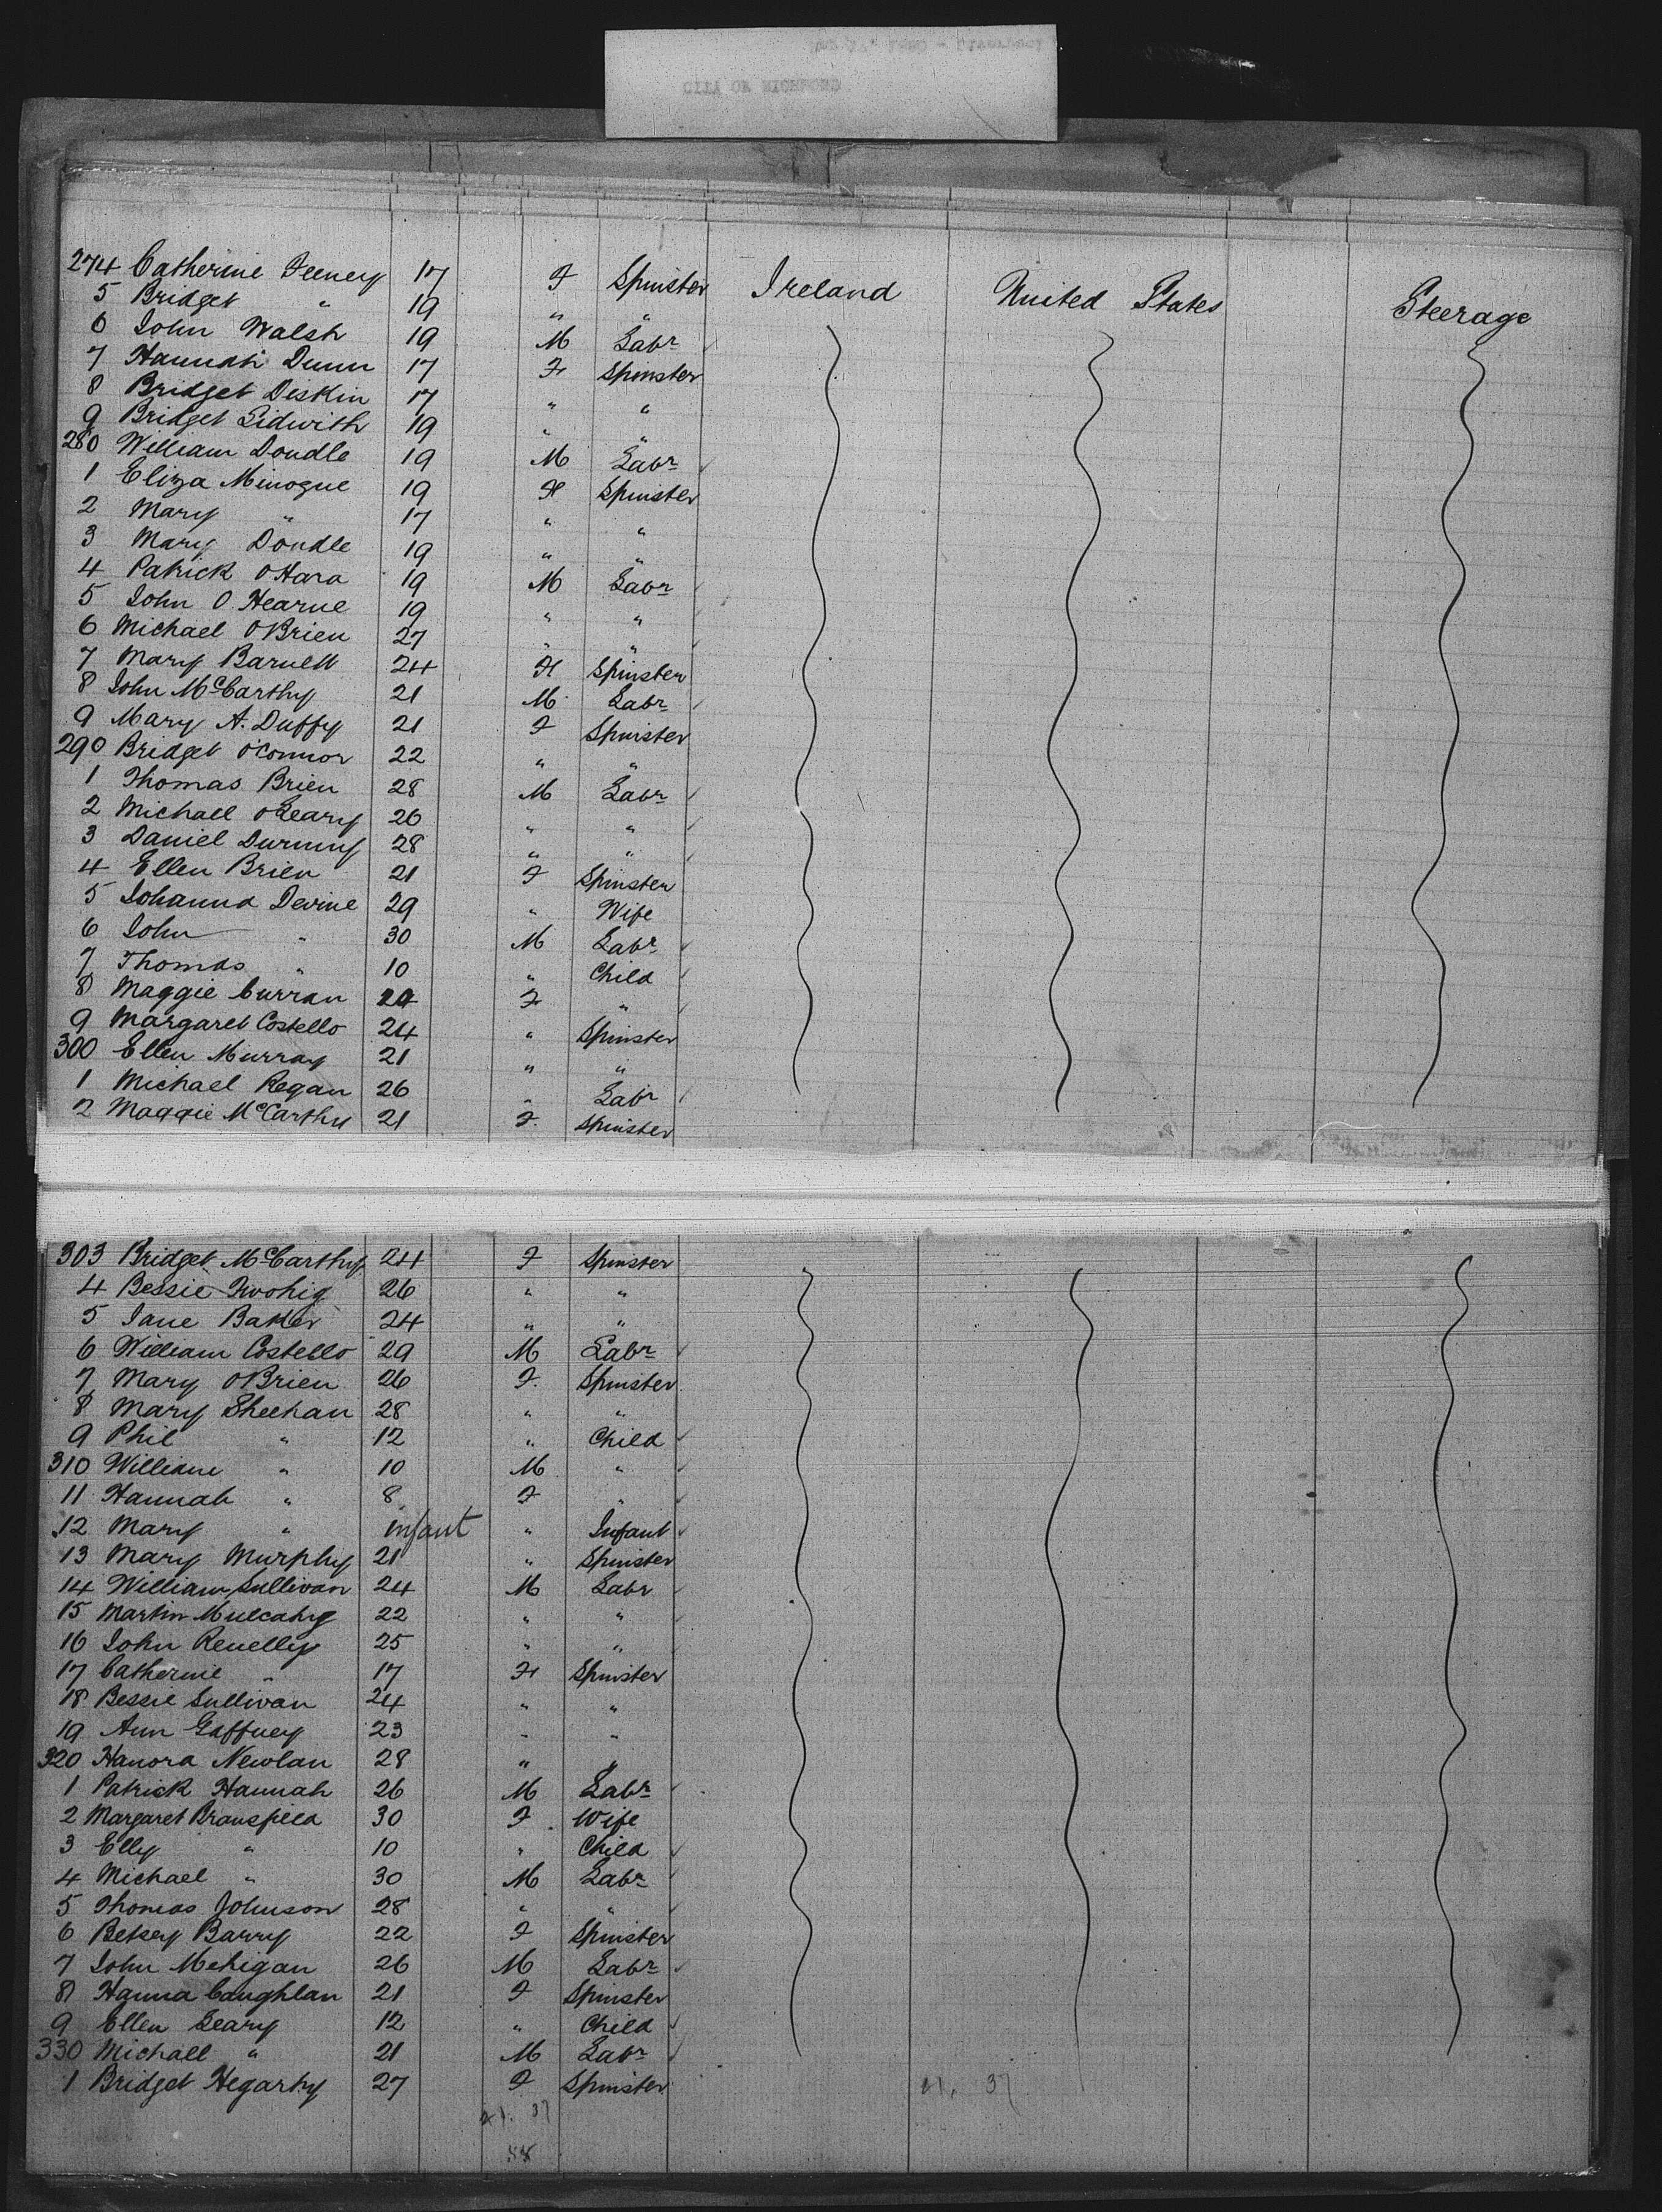 CITY OF RICHMOND
274 Catherine Feeney 17 F Spinster Ireland United States Steerage
5 Bridget " 19 " "
6 John Walsh 19 M Labr
7 Hannah Dunn 17 F Spinster
8 Bridget Diskin 17 " "
9 Bridget Lidwith 19 " "
280 William Doudle 19 M Labr
1 Eliza Minogue 19 F Spinster
2 Mary " 17 " "
3 Mary Doudle 19 " "
4 Patrick O'Hara 19 M Labr
5 John O Hearne 19 " "
6 Michael O'Brien 27 " "
7 Mary Barnett 24 F Spinster
8 John McCarthy 21 M Labr
9 Mary A. Duffy 21 F Spinster
290 Bridget O'Connor 22 " "
1 Thomas Brien 28 M Labr
2 Michael O'Leary 26 " "
3 Daniel 28 " "
4 Ellen Brien 21 F Spinster
5 Johanna Devine 29 " Wife
6 John " 30 M Labr
7 Thomas " 10 " Child
8 Maggie Curran F "
9 Margaret Costello 24 " Spinster
300 Ellen Murray 21 " "
1 Michael Regan 26 " Labr
2 Maggie McCarthy 21 F. Spinster
303 Bridget McCarthy 24 F Spinster
4 Bessie Twohig 26 " "
5 Jane Baker 24 " "
6 William Costello 29 M Labr
7 Mary O'Brien 26 F. Spinster
8 Mary Sheehan 28 " "
9 Phil " 12 " Child
310 William " 10 M "
11 Hannah " 8 F "
12 Mary " infant " Infant
13 Mary Murphy 21 " Spinster
14 William Sullivan 24 M Labr
15 Martin Mulcahy 22 " "
16 John Renelly 25 " "
17 Catherine " 17 F Spinster
18 Bessie Sullivan 24 " "
19 Ann Gaffney 23 " "
320 Hanora Newlan 28 " "
1 Patrick Hannah 26 M Labr
2 Margaret Bransfield 30 F Wife
3 Elly " 10 " Child
4 Michael " 30 M Labr
5 Thomas Johnson 28 " "
6 Betsey Barry 22 F Spinster
7 John Mehigan 26 M Labr
8 Hanna Coughlan 21 F Spinster
9 Ellen Leary 12 " Child
330 Michael " 21 M Labr
1 Bridget Hegarty 27 F Spinster
21. 37 21. 37
58